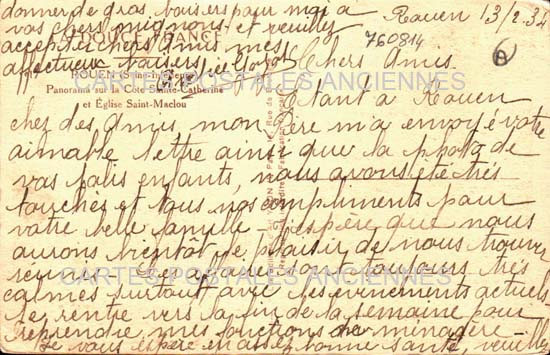 donner de gros baisers pour moi a
vos chers mignons et veuillez
accepter chers Amis mes
affectueux baisers
DOUCE FRANCE
ROUEN (Seine-Inférieure)
Panorama sur la Côte Sainte-Catherine
et Église Saint-Maclou
Rouen 13/2.34
760814
Chers Amis.
Etant a Rouen
chez des Amis mon Père m'a envoyé votre
aimable lettre ainsi que la photo de
vos jolis enfants, nous avons été très
touchés et tous nos compliments pour
votre belle famille j'espère que nous
aurons bientôt le plaisir de nous trouver
réunis les sont toujours très
calmes surtout avec les évènements actuels
je rentre vers la fin de la semaine pour
reprendre mes fonctions de ménagère
Je vous espère en assez bonne santé, veuillez
CARTES POSTALES ANCIENNES
CARTES POSTALES ANCIENNES